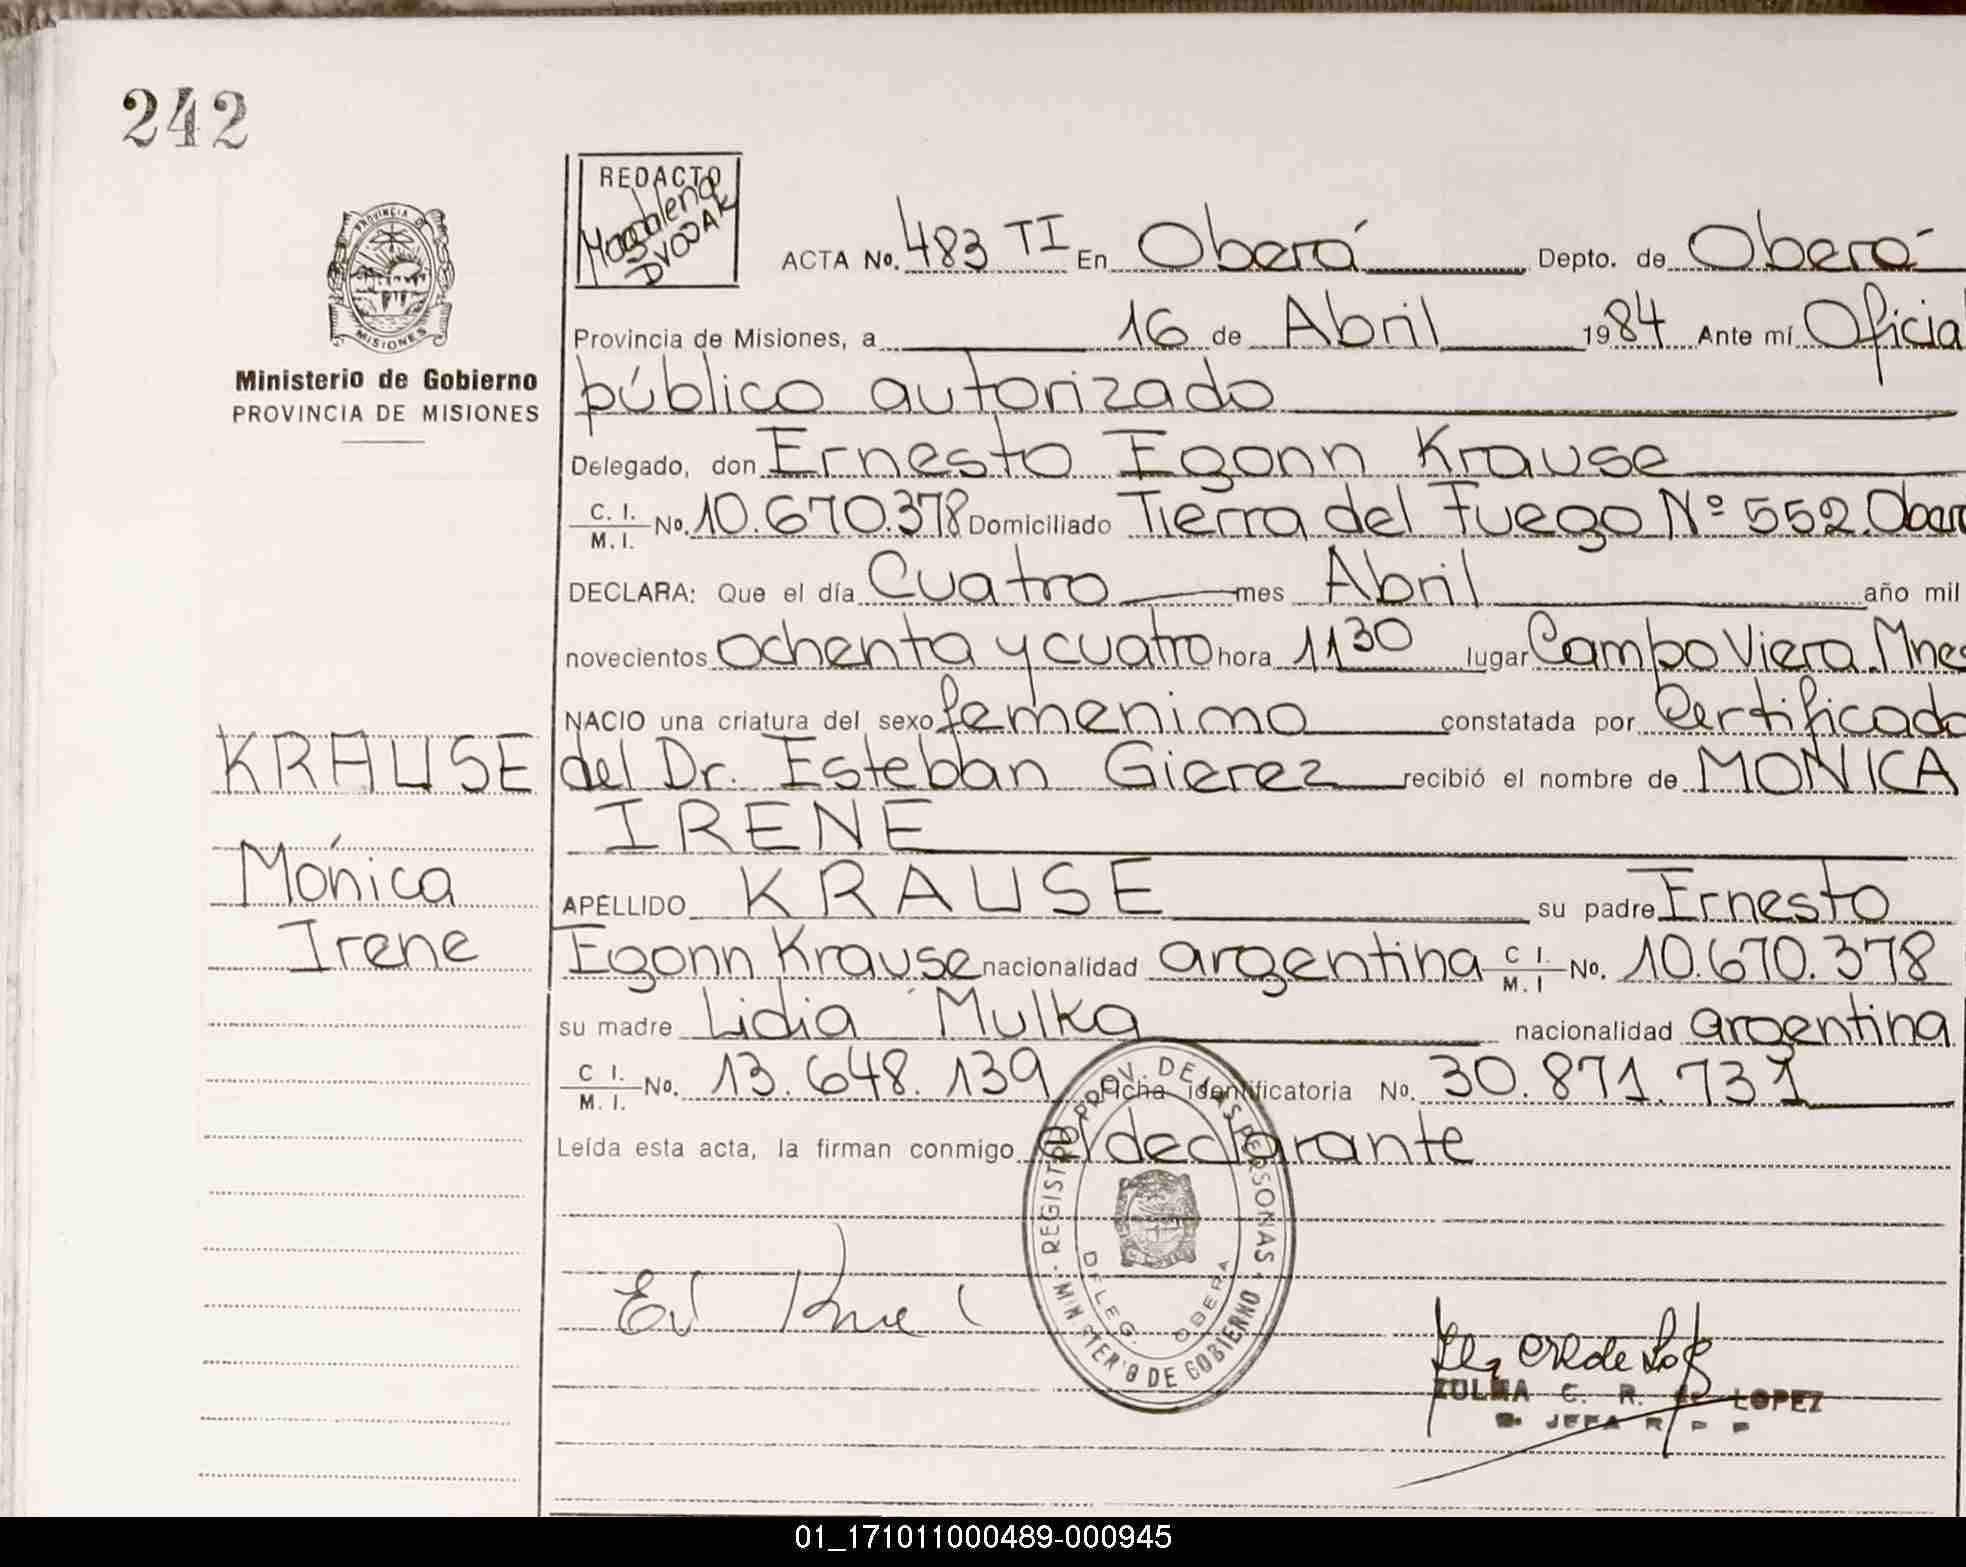 242
REDACTO
Magdalena
DVOJAK
PROVINCIA DE
MISIONES
Ministerio de Gobierno
PROVINCIA DE MISIONES
ACTA No. 483 TI En Oberá Depto. de Oberá
Provincia de Misiones, a 16 de Abril 1984 Ante mí Oficial
público autorizado
Delegado, don Ernesto Egonn Krause
C. I. / M. I. No. 10.670.378 Domiciliado Tierra del Fuego Nº 552.
DECLARA: Que el día Cuatro mes Abril año mil
novecientos ochenta y cuatro hora 11 30 lugar Campo Viera. Mnes
NACIO una criatura del sexo femenino constatada por Certificado
KRAUSE
del Dr. Esteban Gierez recibió el nombre de MONICA
IRENE
Mónica
Irene
APELLIDO KRAUSE su padre Ernesto
Egonn Krause nacionalidad argentina C I. / M. I No. 10.670.378
su madre Lidia Mulka nacionalidad argentina
C I. / M. I. No. 13.648.139 Ficha identificatoria No. 30.871.731
Leída esta acta, la firman conmigo el declarante
REGISTRO PROV. DE LAS PERSONAS
MINISTERIO DE GOBIERNO
DELEG. OBERA
ZULMA C. R. de LOPEZ
JEFA R P P
01_171011000489-000945